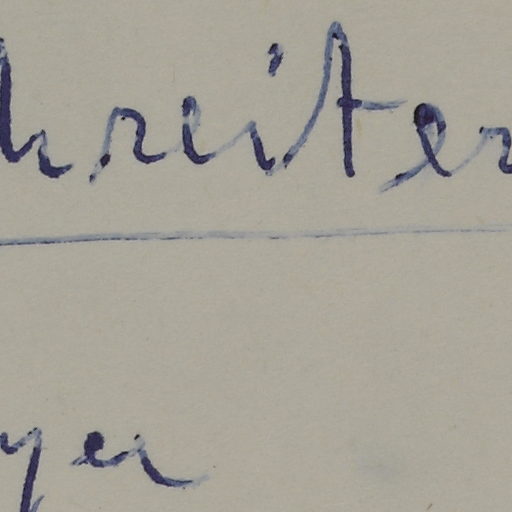 hreiter
yer